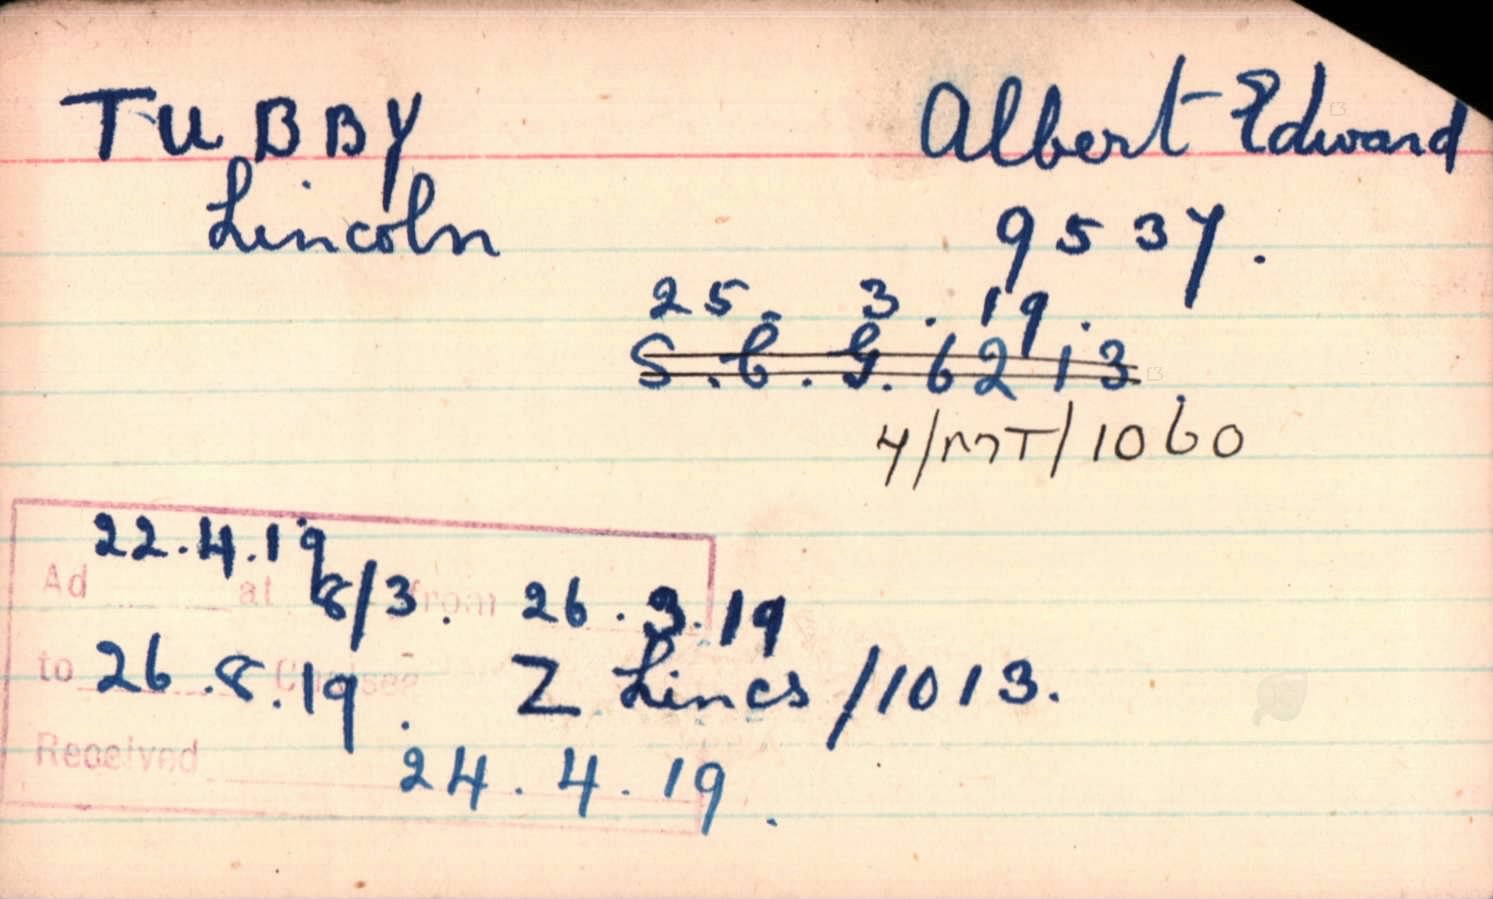 TUBBY Albert Edward
Lincoln 9537.
25. 3. 19.
S.C.G. 6213.
4/MT/1060
22.4.19
Ad at 8/3. from 26.3.19
to 26.8.19. Chelsea Z Lincs/1013.
Received 24.4.19.